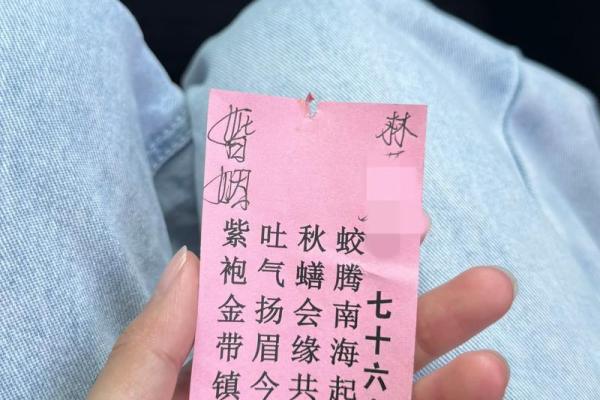 林
七十六
蛟腾南海起
秋蟮会缘共
吐气扬眉今
紫袍金带镇
婚姻